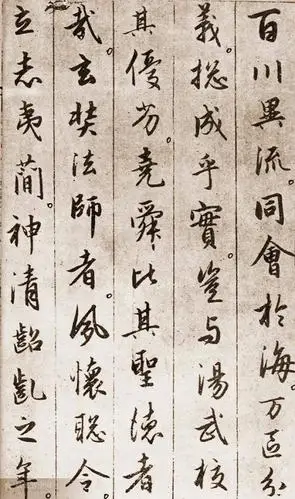 百川異流。同會於海。万區分
義。捴成乎實。豈与湯武校
其優劣。堯舜比其聖德者
哉。玄奘法師者。夙懷聡令。
立志夷蕳。神清齠齔之年。